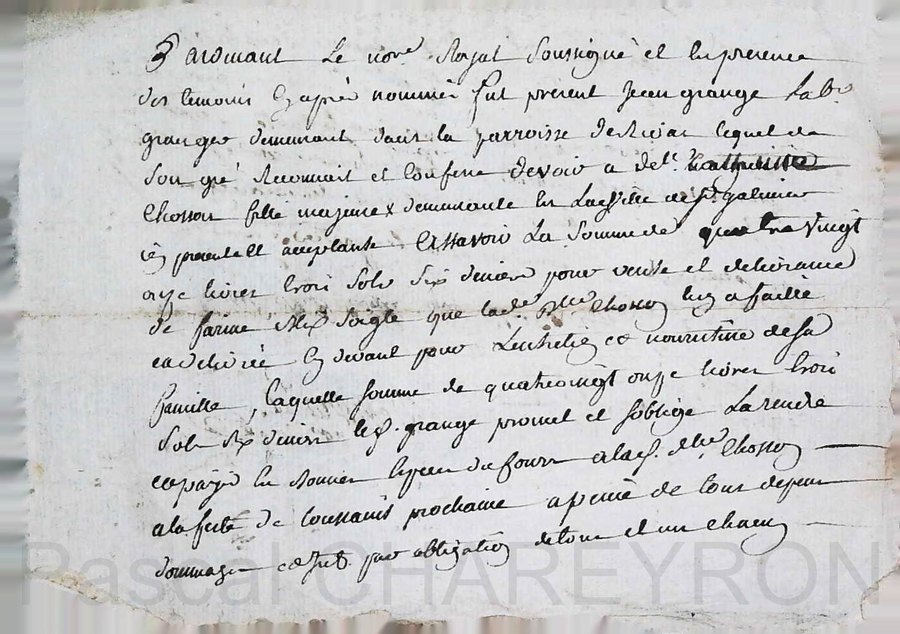 Pardevant Le no.re Royal soussigné et en presence
des temoins cy apres nommés fut present Jean grange Lab.r
granger demeurant dans la parroisse de lequel de
son gré Reconnait et Confesse devoir a de.lle
Chosson fille majeure demeurante en Lad. ville de S.t galmier
icy presente et acceptante Assavoir La somme de quatre vingt
onze livres trois sols six deniers pour vente et delivrance
de farine soigle que lad.e d.lle Chosson luy a faitte
et delivrée cy devant pour et nourriture de sa
famille, laquelle somme de quatrevingt onze livres trois
sols six deniers led. grange promet et soblige La rendre
et payer en lad. d.lle Chosson
a la feste de toussaints prochaine a peine de tous depens
dommages et par obligation de tous et un chacun
Pascal CHAREYRON